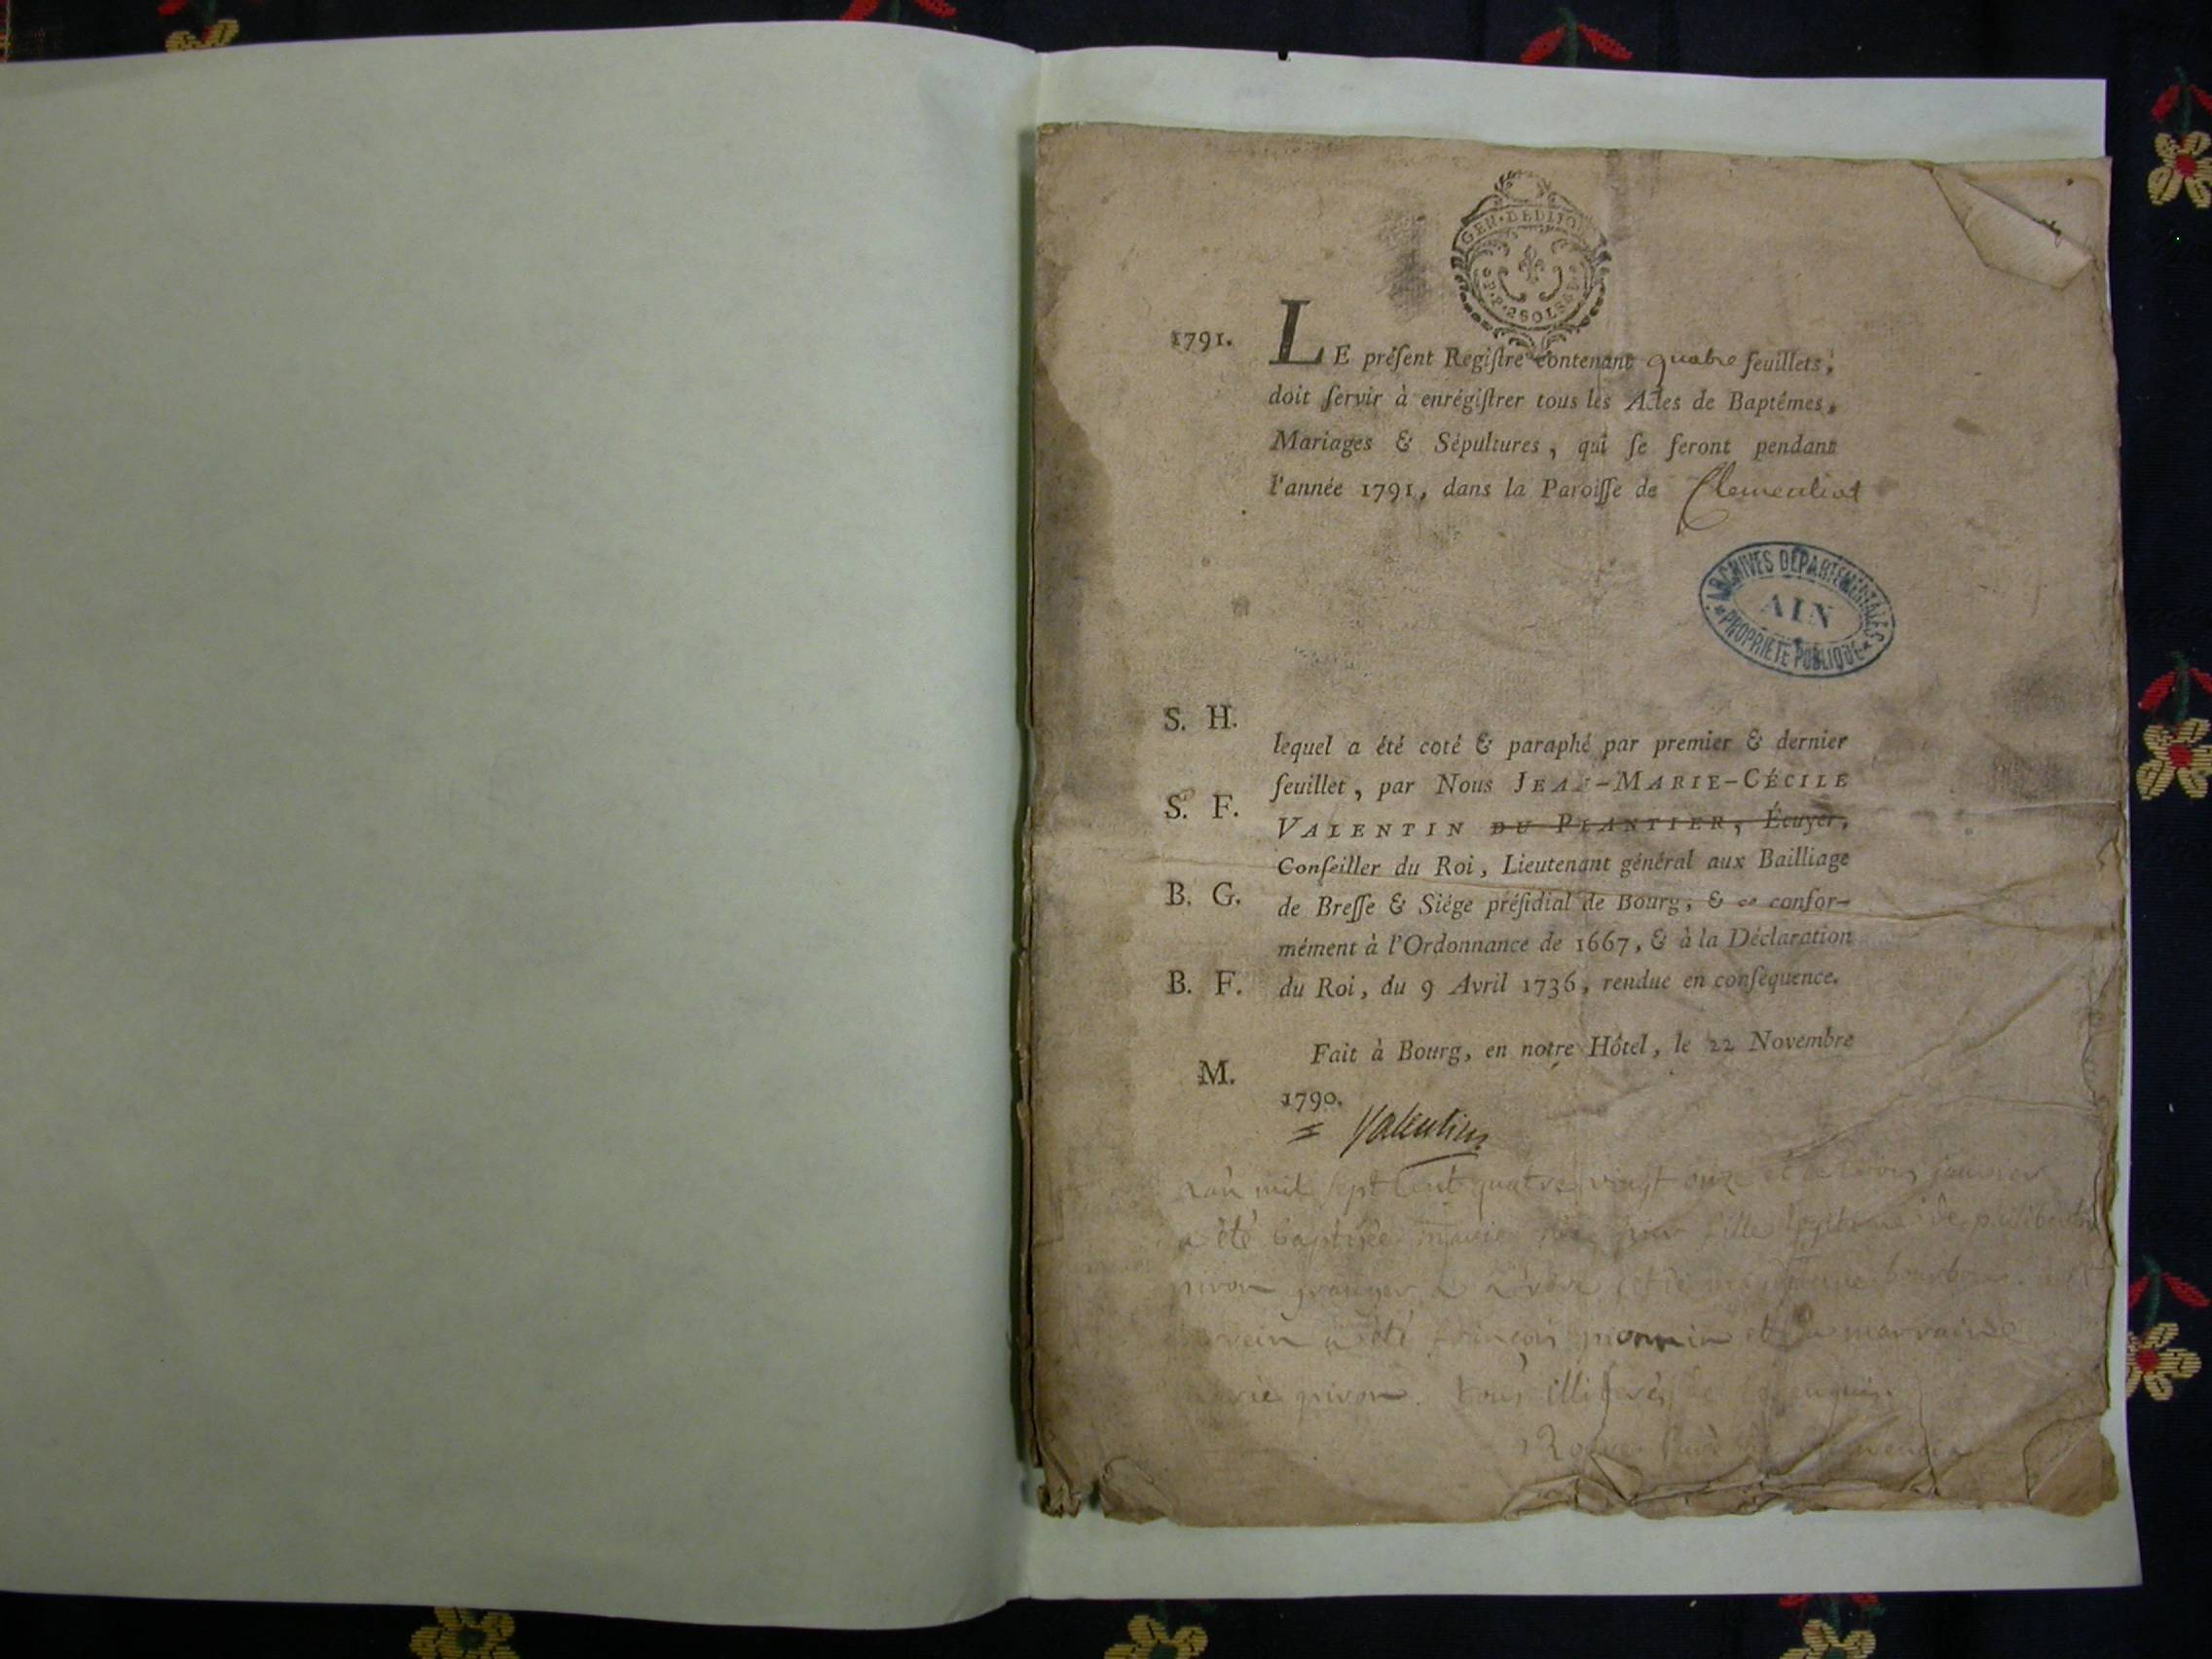 GEN. DE DIJON
P. P. 2 SOLS
1791.
LE préſent Regiſtre contenant quatre feuillets,
doit ſervir à enrégiſtrer tous les Actes de Baptêmes,
Mariages & Sépultures, qui ſe feront pendant
l'année 1791, dans la Paroiſſe de Clementiat
ARCHIVES DÉPARTEMENTALES
AIN
PROPRIÉTÉ PUBLIQUE
S. H.
lequel a été coté & paraphé par premier & dernier
feuillet, par Nous JEAN-MARIE-CÉCILE
S. F.
VALENTIN DU PLANTIER, Écuyer,
Conſeiller du Roi, Lieutenant général aux Bailliage
B. G.
de Breſſe & Siége préſidial de Bourg, & ce confor-
mément à l'Ordonnance de 1667, & à la Déclaration
B. F.
du Roi, du 9 Avril 1736, rendue en conſéquence.
Fait à Bourg, en notre Hôtel, le 22 Novembre
M.
1790.
Valentin
L'an mil sept cent quatre vingt onze et le trois janvier
a été baptisée marie fille legitime de philiberte
pivon granger et de bourbon
a été françois et sa marraine
pivon. tous illiterés de
curé